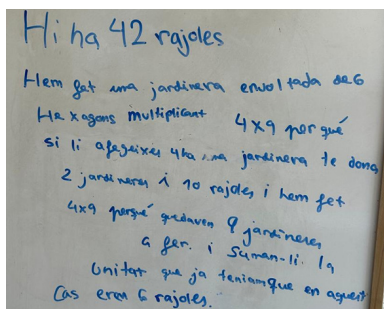 Hi ha 42 rajoles
Hem fet una jardinera envoltada de 6
Hexagons multiplicant 4x9 perquè
si li afegeixes 4 ha una jardinera te dona
2 jardineres i 10 rajoles i hem fet
4x9 perquè quedaven 9 jardineres
a fer. i suman-li la
unitat que ja teniam que en aquest
cas eren 6 rajoles.